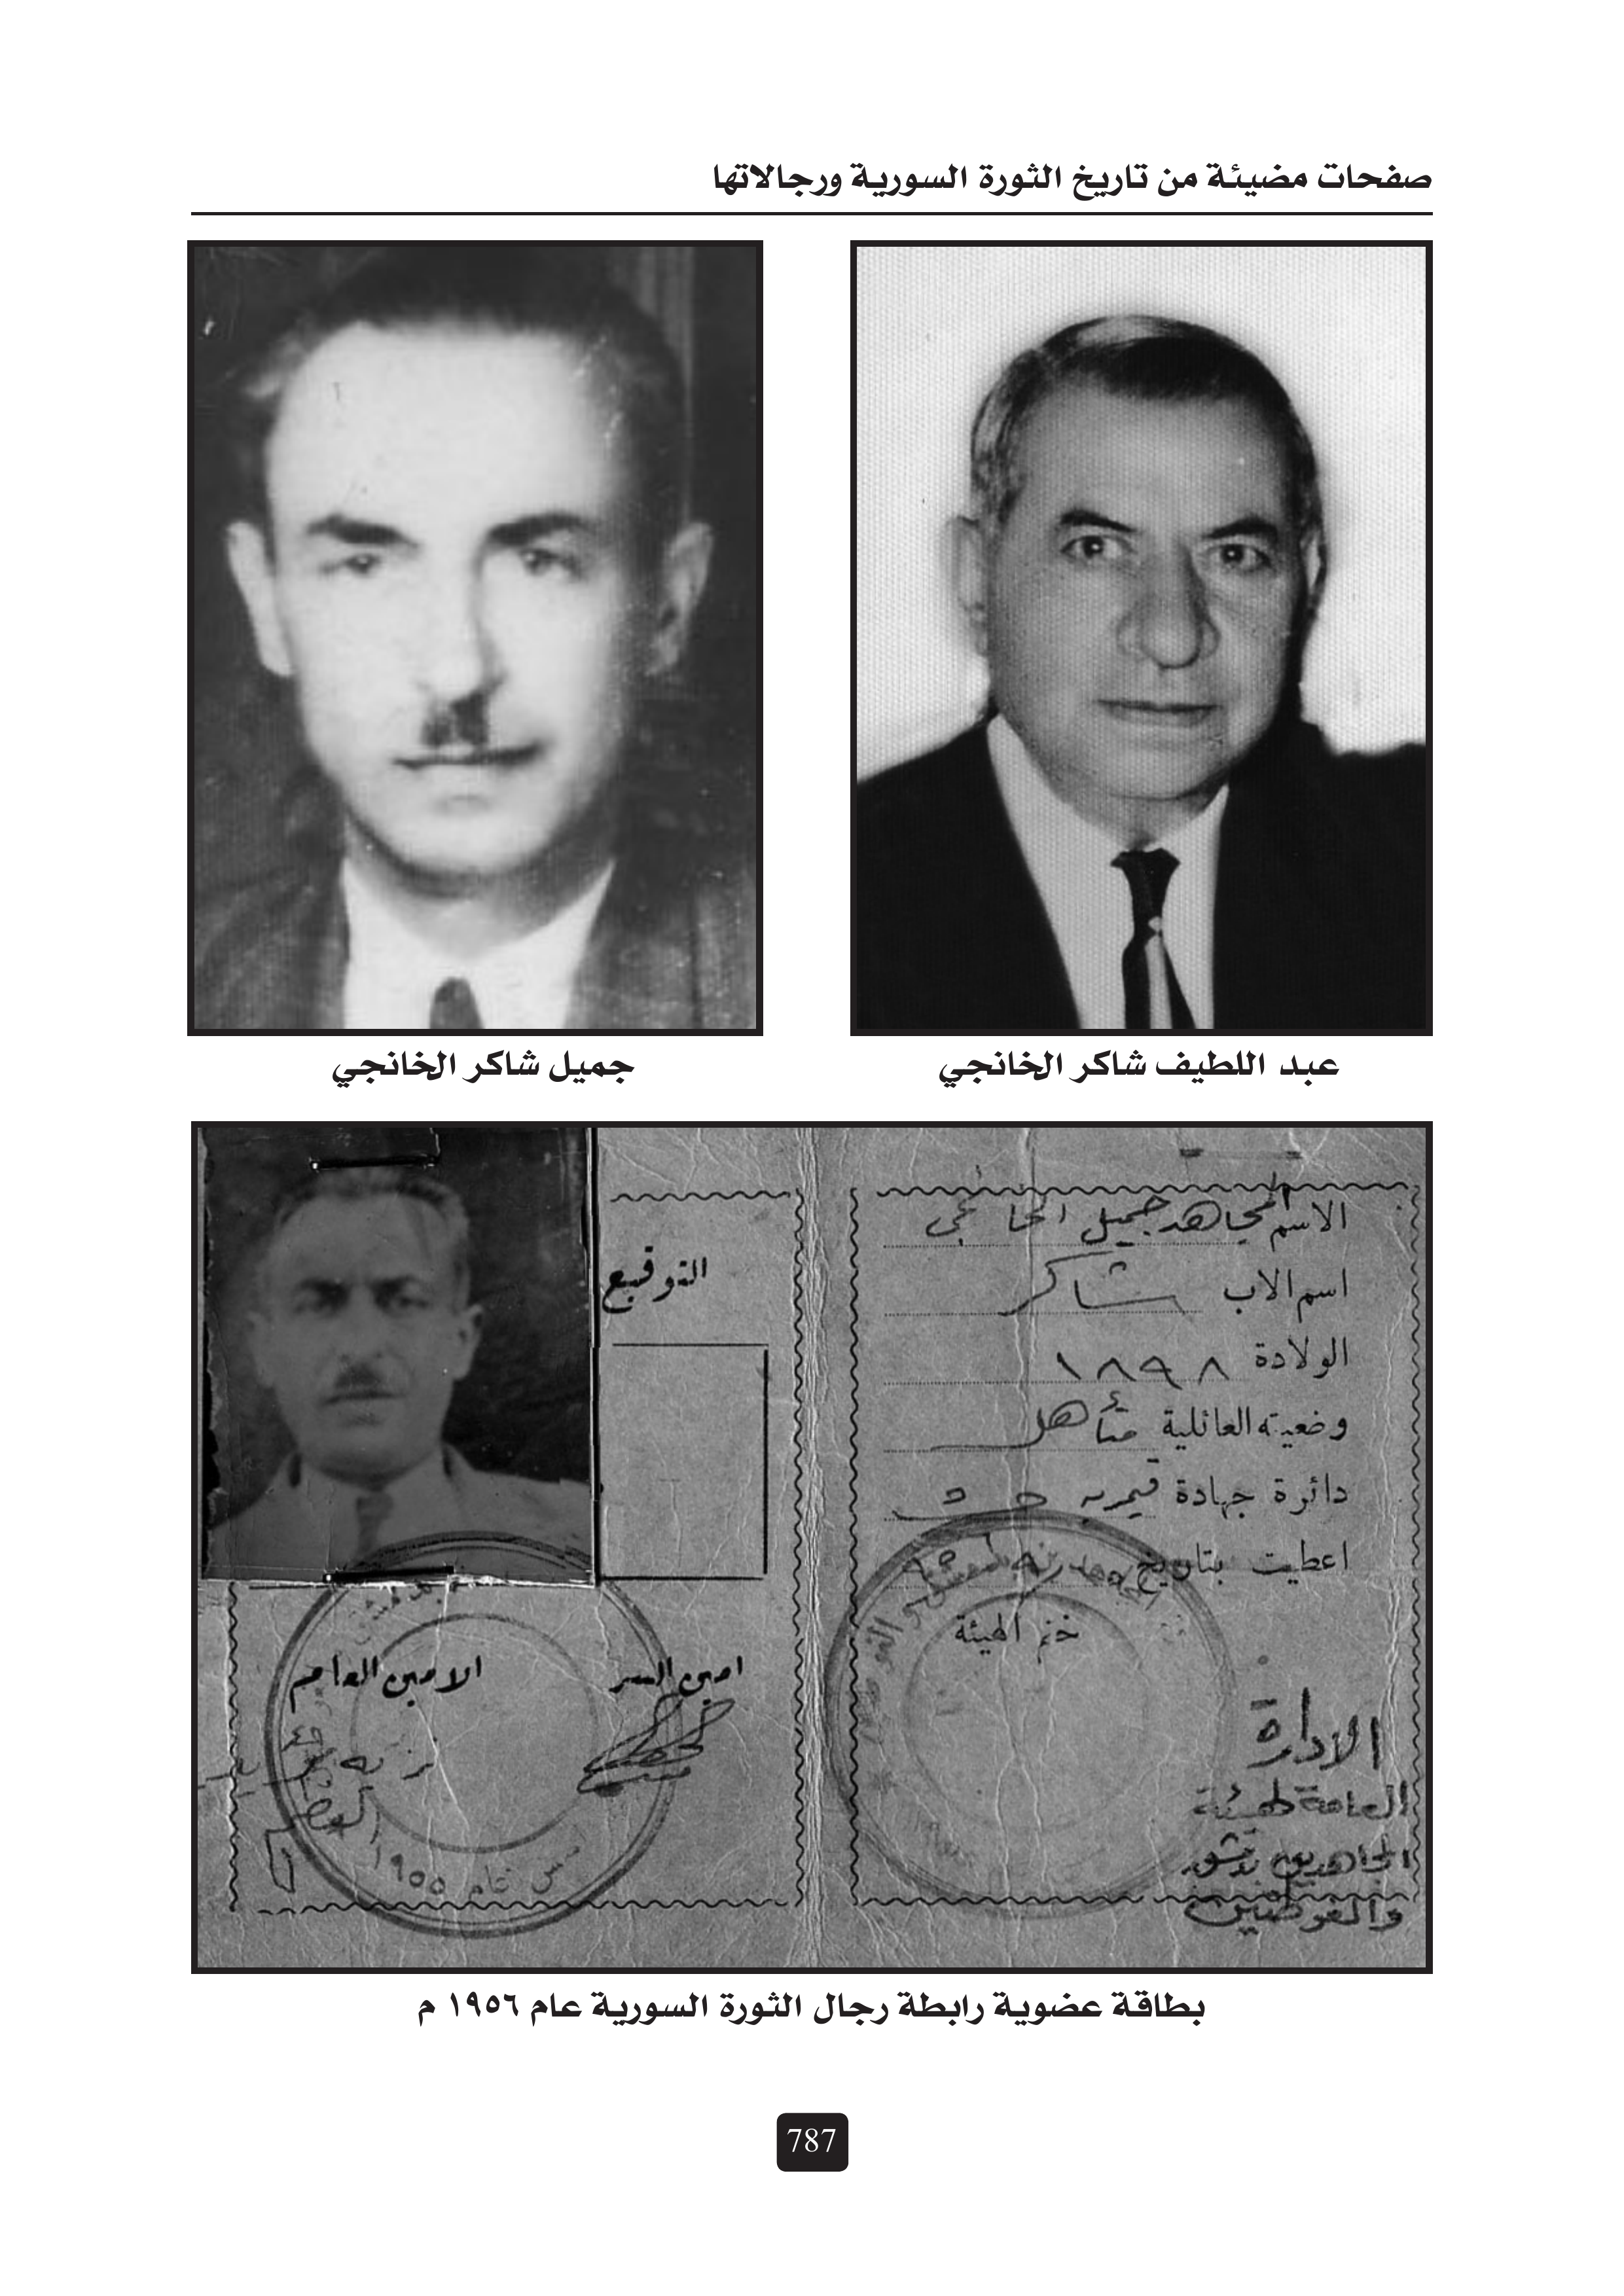 صفحات مضيئة من تاريخ الثورة السورية ورجالاتها
عبد اللطيف شاكر الخانجي
جميل شاكر الخانجي
الاسم المجاهد جميل الخانجي
اسم الاب شاكر
الولادة ١٨٩٨
وضعيته العائلية متأهل
دائرة جهادة قيمرية
اعطيت بتاريخ
ختم الهيئة
الادارة
العامة لهيئة
المجاهدين بدمشق
والغوطتين
التوقيع
امين السر
الامين العام
عام ١٩٥٥
بطاقة عضوية رابطة رجال الثورة السورية عام ١٩٥٦ م
787